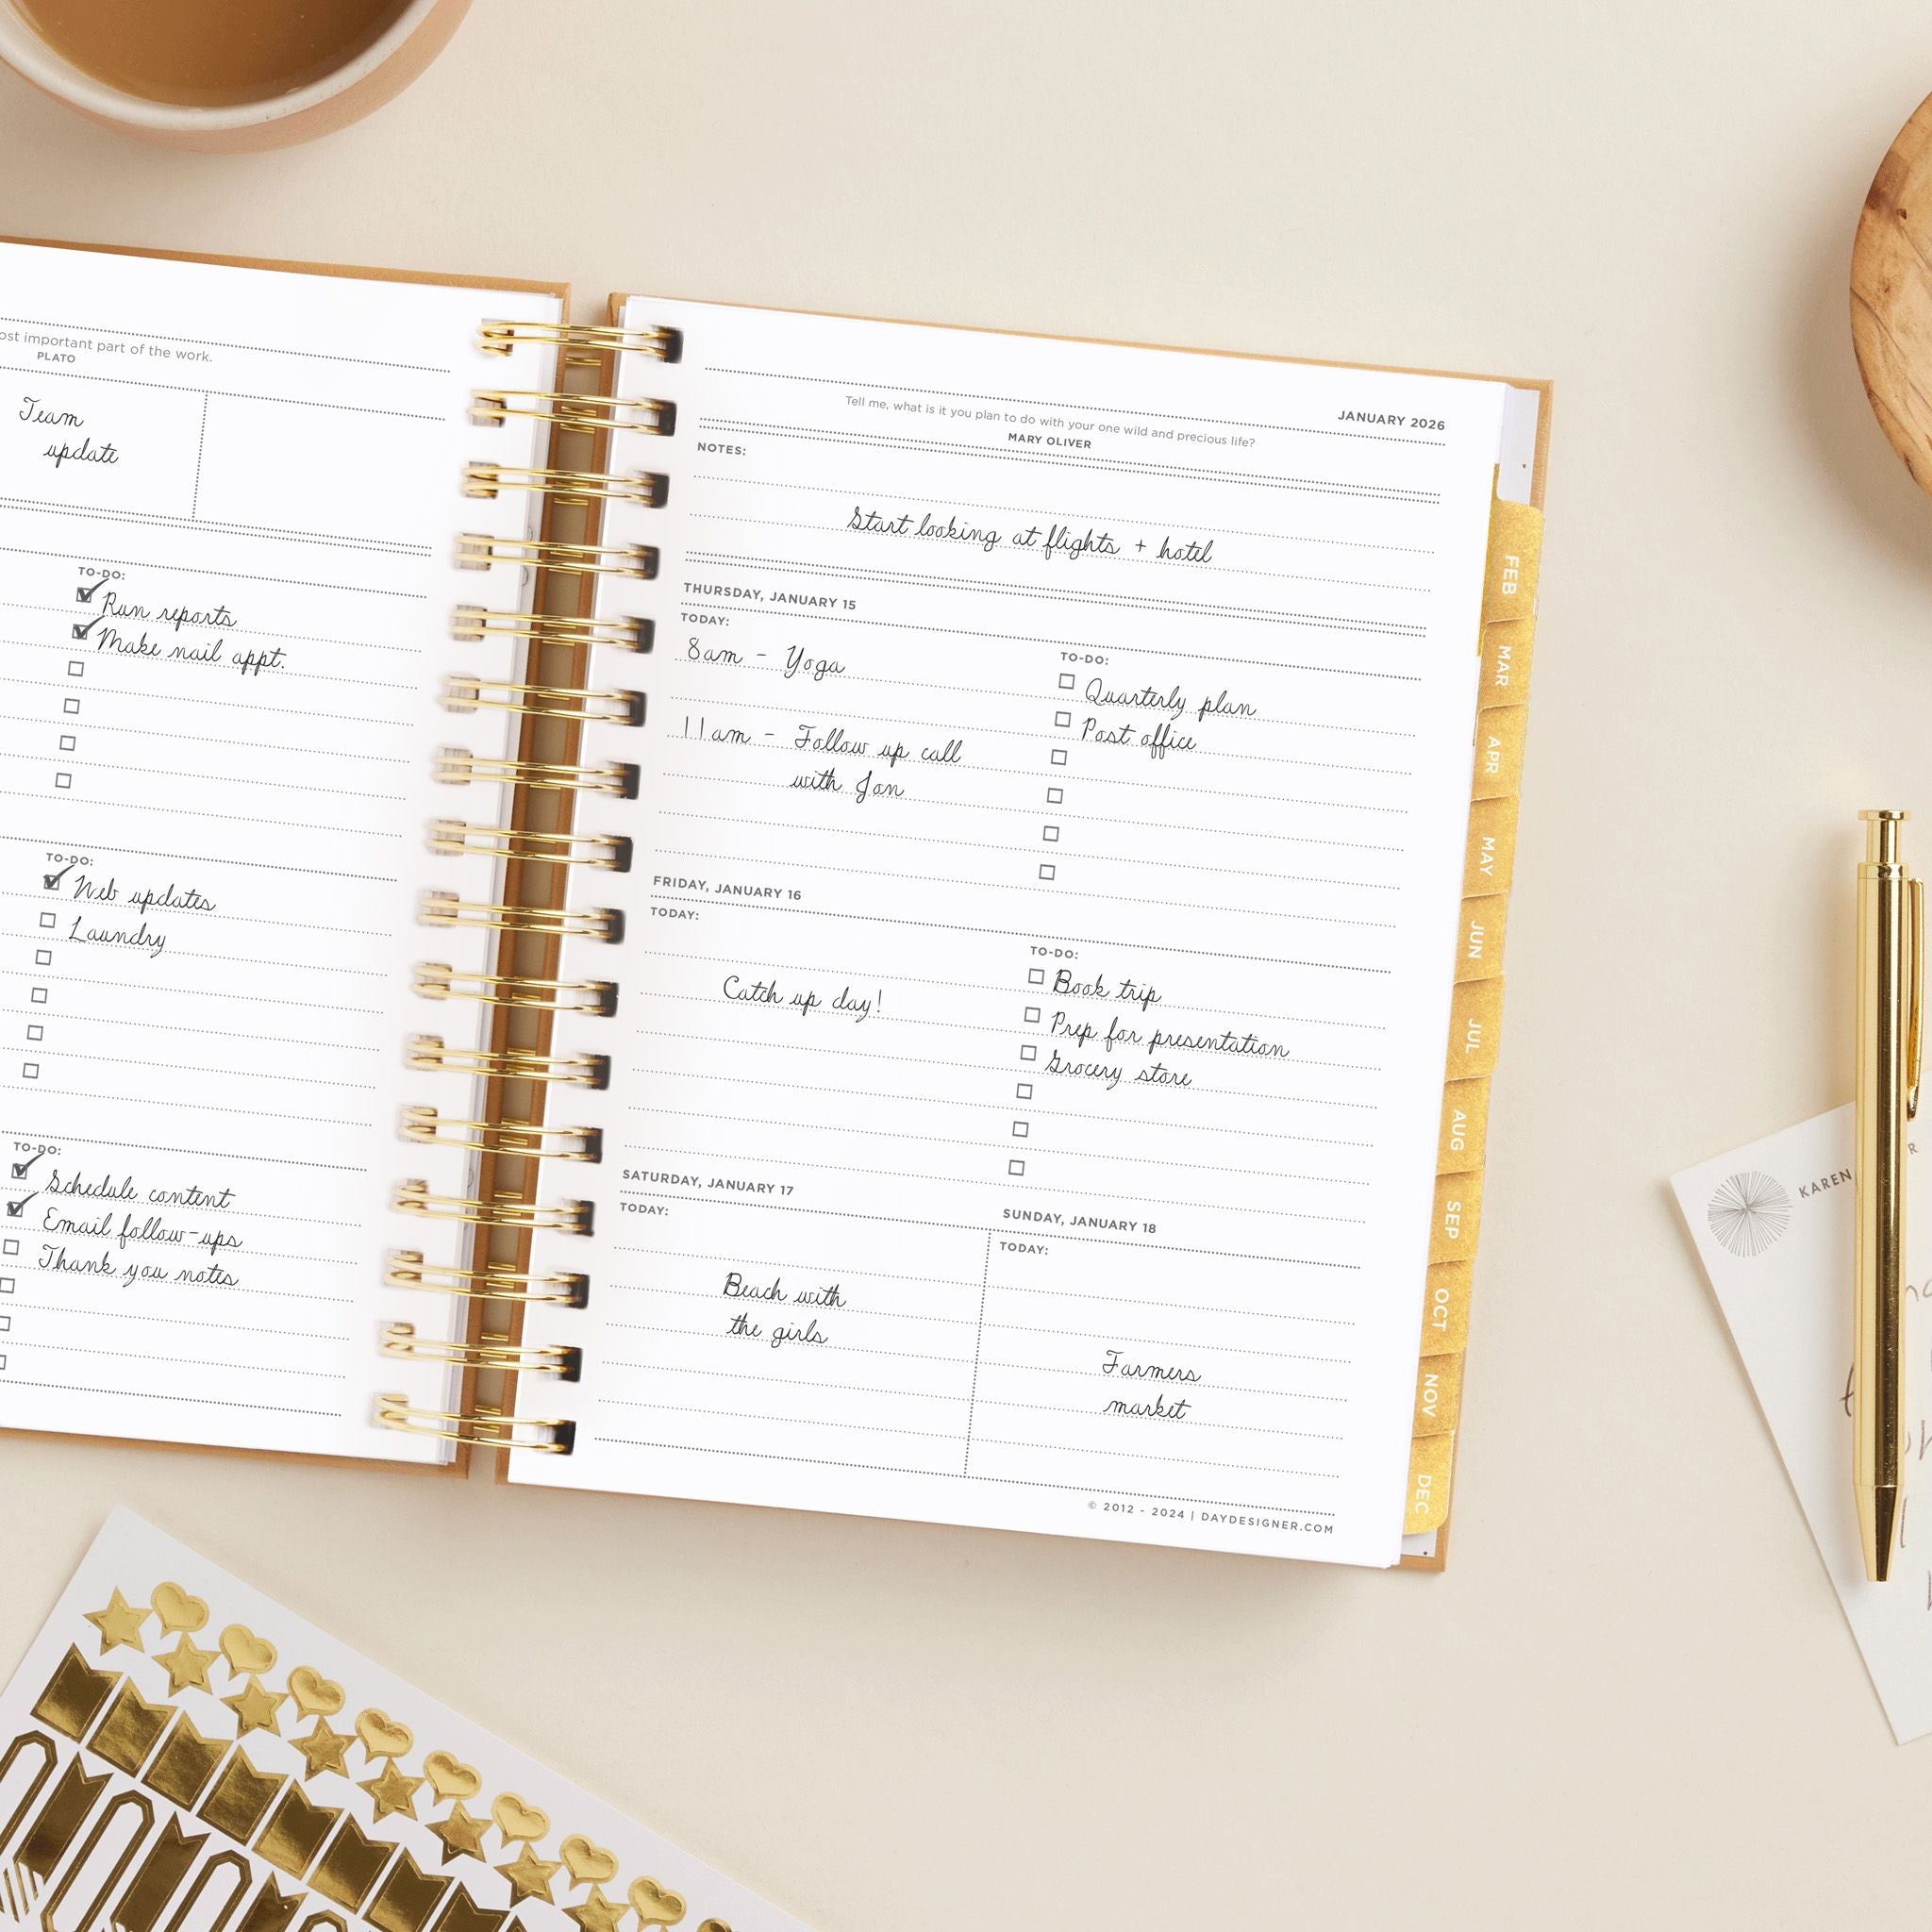 ost important part of the work.
PLATO
Team
update
TO-DO:
Run reports
Make nail appt.
TO-DO:
Web updates
Laundry
TO-DO:
Schedule content
Email follow-ups
Thank you notes
JANUARY 2026
Tell me, what is it you plan to do with your one wild and precious life?
MARY OLIVER
NOTES:
Start looking at flights + hotel
THURSDAY, JANUARY 15
TODAY:
8am - Yoga
11am - Follow up call
with Jan
TO-DO:
Quarterly plan
Post office
FRIDAY, JANUARY 16
TODAY:
Catch up day!
TO-DO:
Book trip
Prep for presentation
Grocery store
SATURDAY, JANUARY 17
TODAY:
Beach with
the girls
SUNDAY, JANUARY 18
TODAY:
Farmers
market
© 2012 - 2024 | DAYDESIGNER.COM
FEB
MAR
APR
MAY
JUN
JUL
AUG
SEP
OCT
NOV
DEC
KAREN